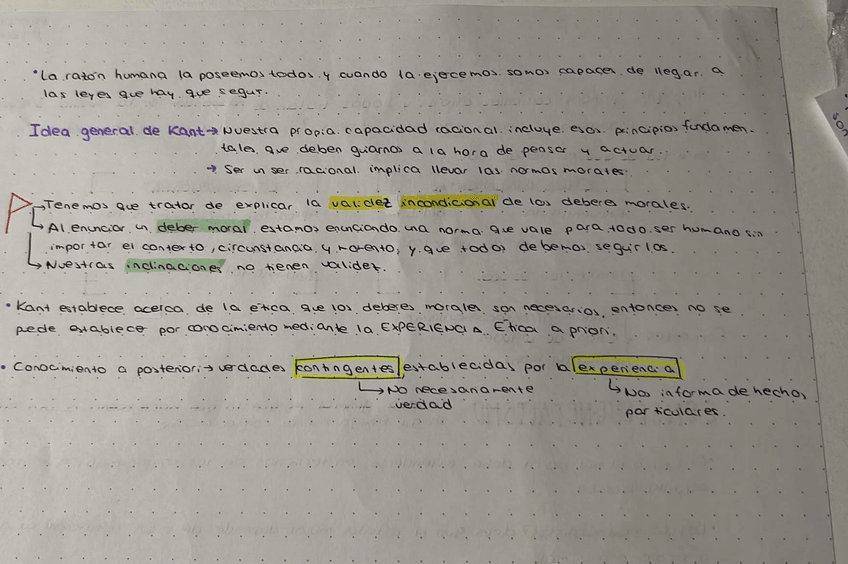 • La razón humana la poseemos todos y cuando la ejercemos somos capaces de llegar a
las leyes que hay que seguir.
Idea general de Kant → Nuestra propia capacidad racional incluye esos principios fundamen-
tales que deben guiarnos a la hora de pensar y actuar.
→ Ser un ser racional implica llevar las normas morales.
P → Tenemos que tratar de explicar la validez incondicional de los deberes morales.
→ Al enunciar un deber moral estamos enunciando una norma que vale para todo ser humano sin
importar el contexto, circunstancia y momento, y que todos debemos seguirlos.
→ Nuestras inclinaciones no tienen validez.
• Kant establece acerca de la ética que los deberes morales son necesarios, entonces no se
pede establecer por conocimiento mediante la EXPERIENCIA. Ética a priori.
• Conocimiento a posteriori → verdades contingentes establecidas por la experiencia
→ No necesariamente
verdad
→ Nos informa de hechos
particulares.